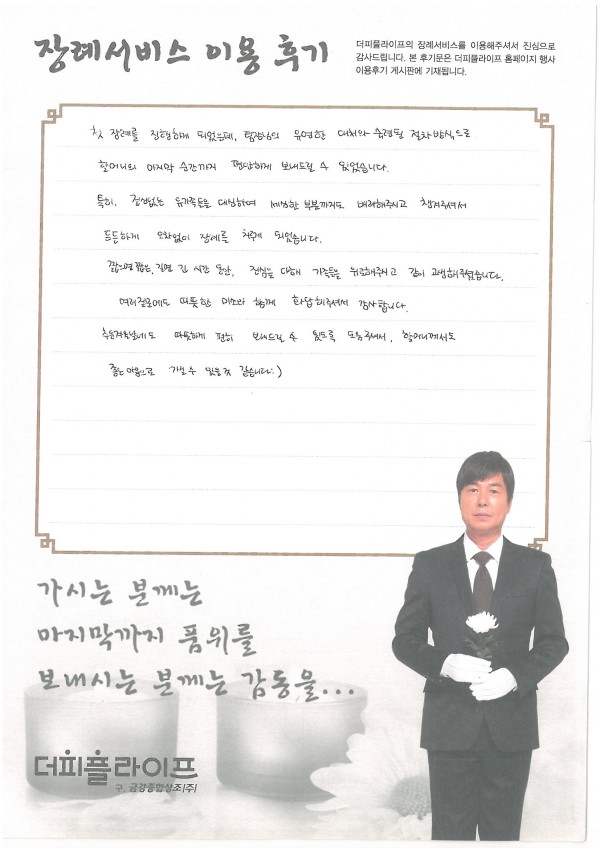 장례서비스 이용 후기
더피플라이프의 장례서비스를 이용해주셔서 진심으로
감사드립니다. 본 후기문은 더피플라이프 홈페이지 행사
이용후기 게시판에 기재됩니다.
첫 장례를 진행하게 되었는데, 팀장님의 유연한 대처와 숙련된 절차방식으로
할머니의 마지막 순간까지 편안하게 보내드릴 수 있었습니다.
특히, 정신없는 유가족들을 대신하여 세심한 부분까지도 배려해주시고 챙겨주셔서
든든하게 오차없이 장례를 치루게 되었습니다.
짧으면 짧은, 길면 긴 시간 동안, 진심을 다해 가족들을 위로해주시고 같이 고생해주셨습니다.
여러질문에도 따뜻한 미소와 함께 화답해주셔서 감사합니다.
따뜻하게 편히 보내드릴 수 있도록 도와주셔서, 할머니께서도
좋은 마음으로 가실 수 있을 것 같습니다:)
가시는 분께는
마지막까지 품위를
보내시는 분께는 감동을...
더피플라이프
구. 금강종합상조(주)